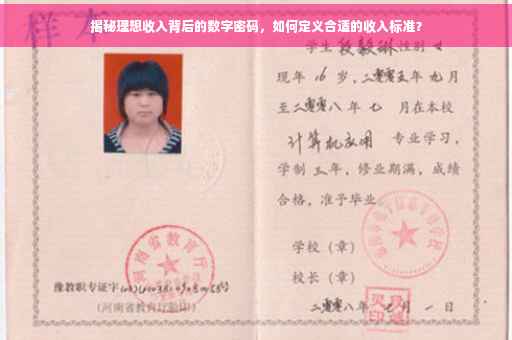 揭秘理想收入背后的数字密码，如何定义合适的收入标准？
样本
学生 段毅琳 性别 女
现年 16 岁，二零零五年 九月
至二零零八年 七 月在本校
计算机应用 专业学习，
学制 三年，修业期满，成绩
合格，准予毕业。
学校（章）
校长（章）
河南省教育厅
豫教职专证字
（河南省教育厅验印）
二零零八年 七 月 一 日